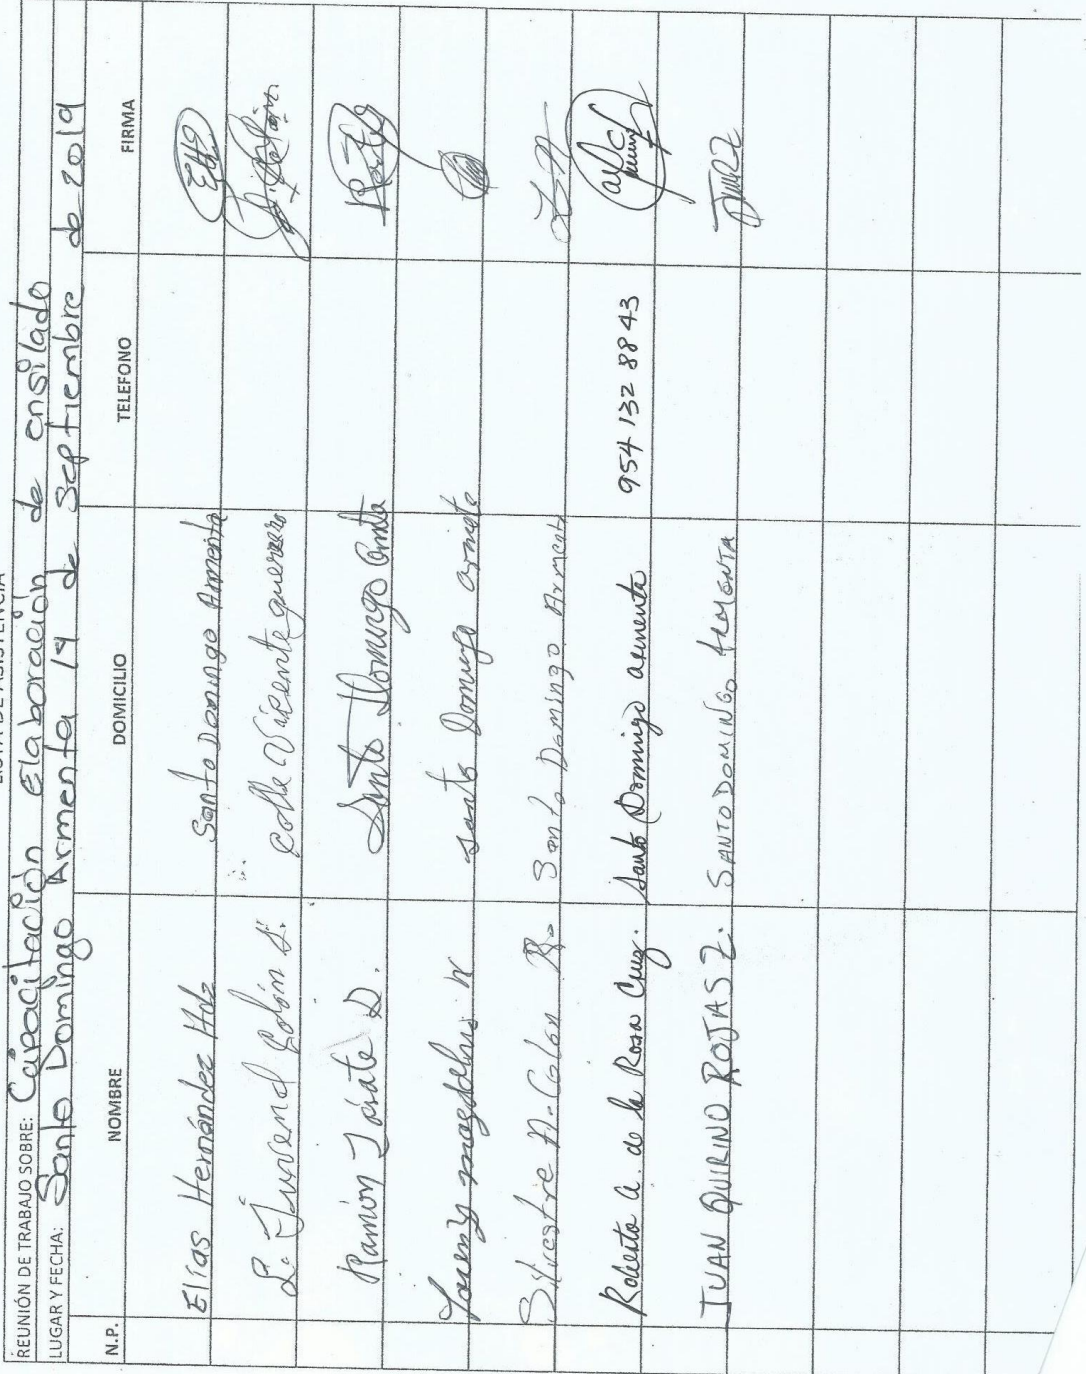 LISTA DE ASISTENCIA
REUNIÓN DE TRABAJO SOBRE: Capacitación Elaboración de ensilado
LUGAR Y FECHA: Santo Domingo Armenta 19 de Septiembre de 2019
N.P. NOMBRE DOMICILIO TELEFONO FIRMA
Elías Hernández Hdz Santo Domingo Armenta
L. Juvenal Colón S. Calle Vicente guerrero
Ramón Zárate D. Santo Domingo
magdaleno santo Domingo
Silvestre A. Colon Santo Domingo Armenta
Roberto A. de la Rosa Cruz. Santo Domingo armenta 954 132 88 43
JUAN QUIRINO ROJAS Z. SANTO DOMINGO ARMENTA